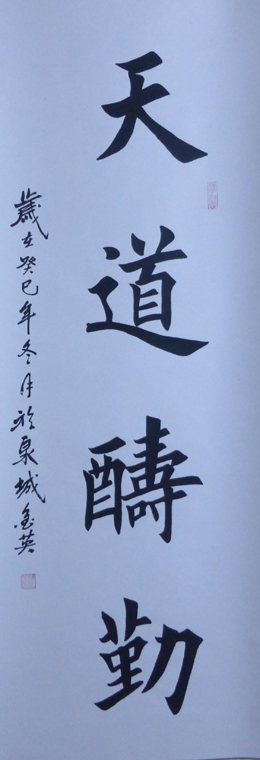 天道醻勤
歲在癸巳年冬月於泉城金英